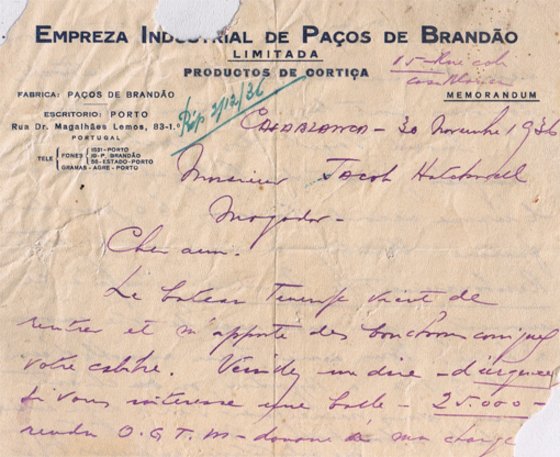 EMPREZA INDUSTRIAL DE PAÇOS DE BRANDÃO
LIMITADA
PRODUCTOS DE CORTIÇA
15 - Rue
Casablanca
FABRICA: PAÇOS DE BRANDÃO
MEMORANDUM
ESCRITORIO: PORTO
Rua Dr. Magalhães Lemos, 83-1.º
PORTUGAL
TELE
FONES
1531-PORTO
19-P. BRANDÃO
56-ESTADO-PORTO
GRAMAS - AGRE - PORTO
Rép 2/12/36
CASABLANCA - 30 Novembre 1936
Monsieur Jacob
Mogador -
Cher ami.
Le bateau vient de
rentrer et m'apporte des bouchons coniques
votre calibre. me dire - d'urgence
si vous interesse une balle - 25.000 -
rendu O.G.T.M - douane à ma charge